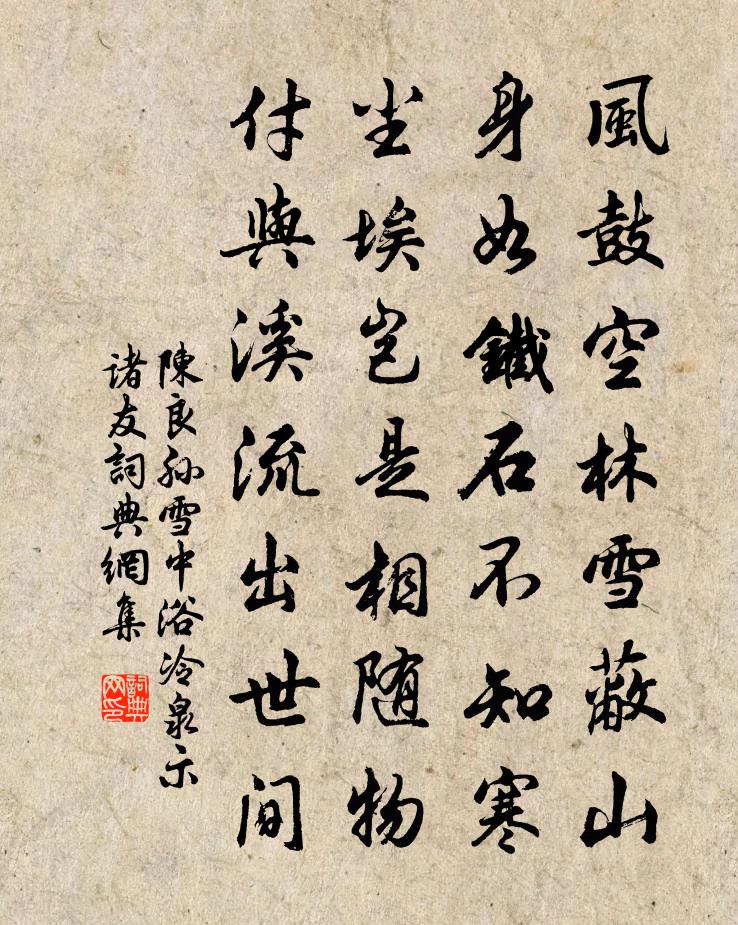 風鼓空林雪蔽山
身如鐵石不知寒
尘埃岂是相随物
付與溪流出世间
陳良孙雪中浴冷泉示
诸友詞典網集
詞典
网印